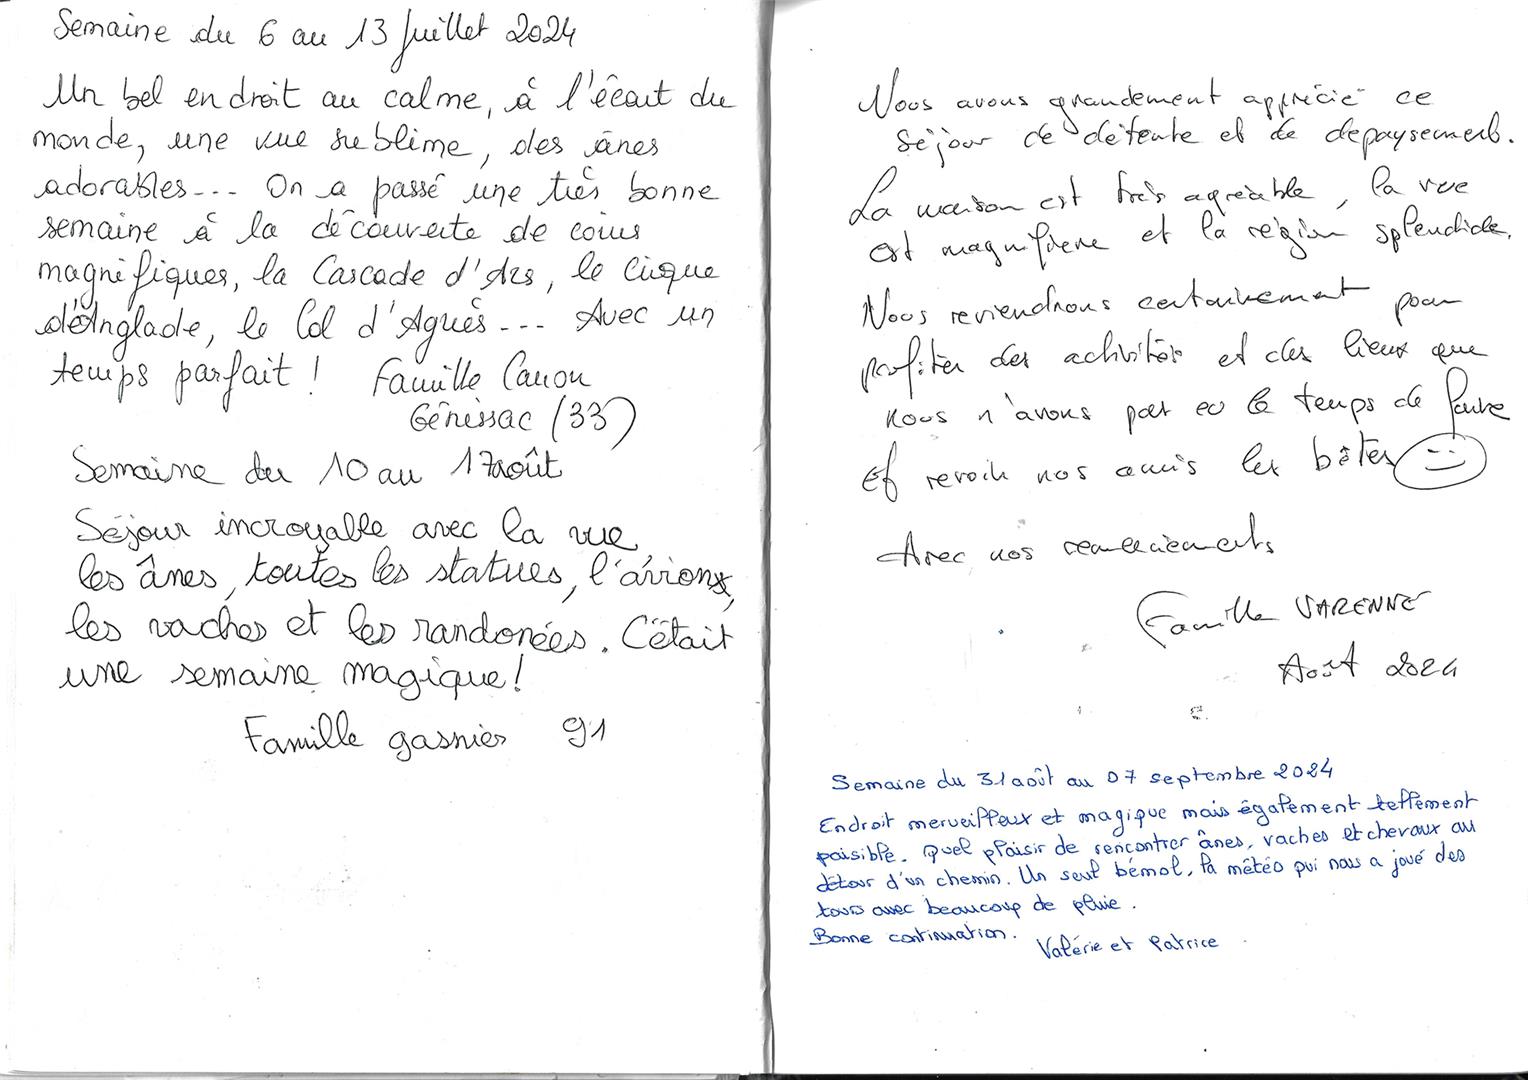 Semaine du 6 au 13 Juillet 2024
Un bel endroit au calme, à l'écart du
monde, une vue sublime, des ânes
adorables... On a passé une très bonne
semaine à la découverte de coins
magnifiques, la Cascade d'Ars, le Cirque
d'Anglade, le Col d'Agnès... Avec un
temps parfait ! Famille Canon
Génissac (33)
Semaine du 10 au 17 août
Séjour incroyable avec la vue
les ânes, toutes les statues, l'avion,
les vaches et les randonées. C'était
une semaine magique !
Famille gasnier 91
Nous avons grandement apprécié ce
séjour de détente et de depaysement.
La maison est très agréable, la vue
est magnifique et la région splendide.
Nous reviendrons certainement pour
profiter des activités et des lieux que
nous n'avons pas eu le temps de faire
Et revoir nos amis les bêtes
Avec nos remerciements
Famille VARENNE
Août 2024
Semaine du 31 août au 07 septembre 2024
Endroit merveilleux et magique mais également tellement
paisible. Quel plaisir de rencontrer ânes, vaches et chevaux au
détour d'un chemin. Un seul bémol, la météo qui nous a joué des
tours avec beaucoup de pluie.
Bonne continuation.
Valérie et Patrice